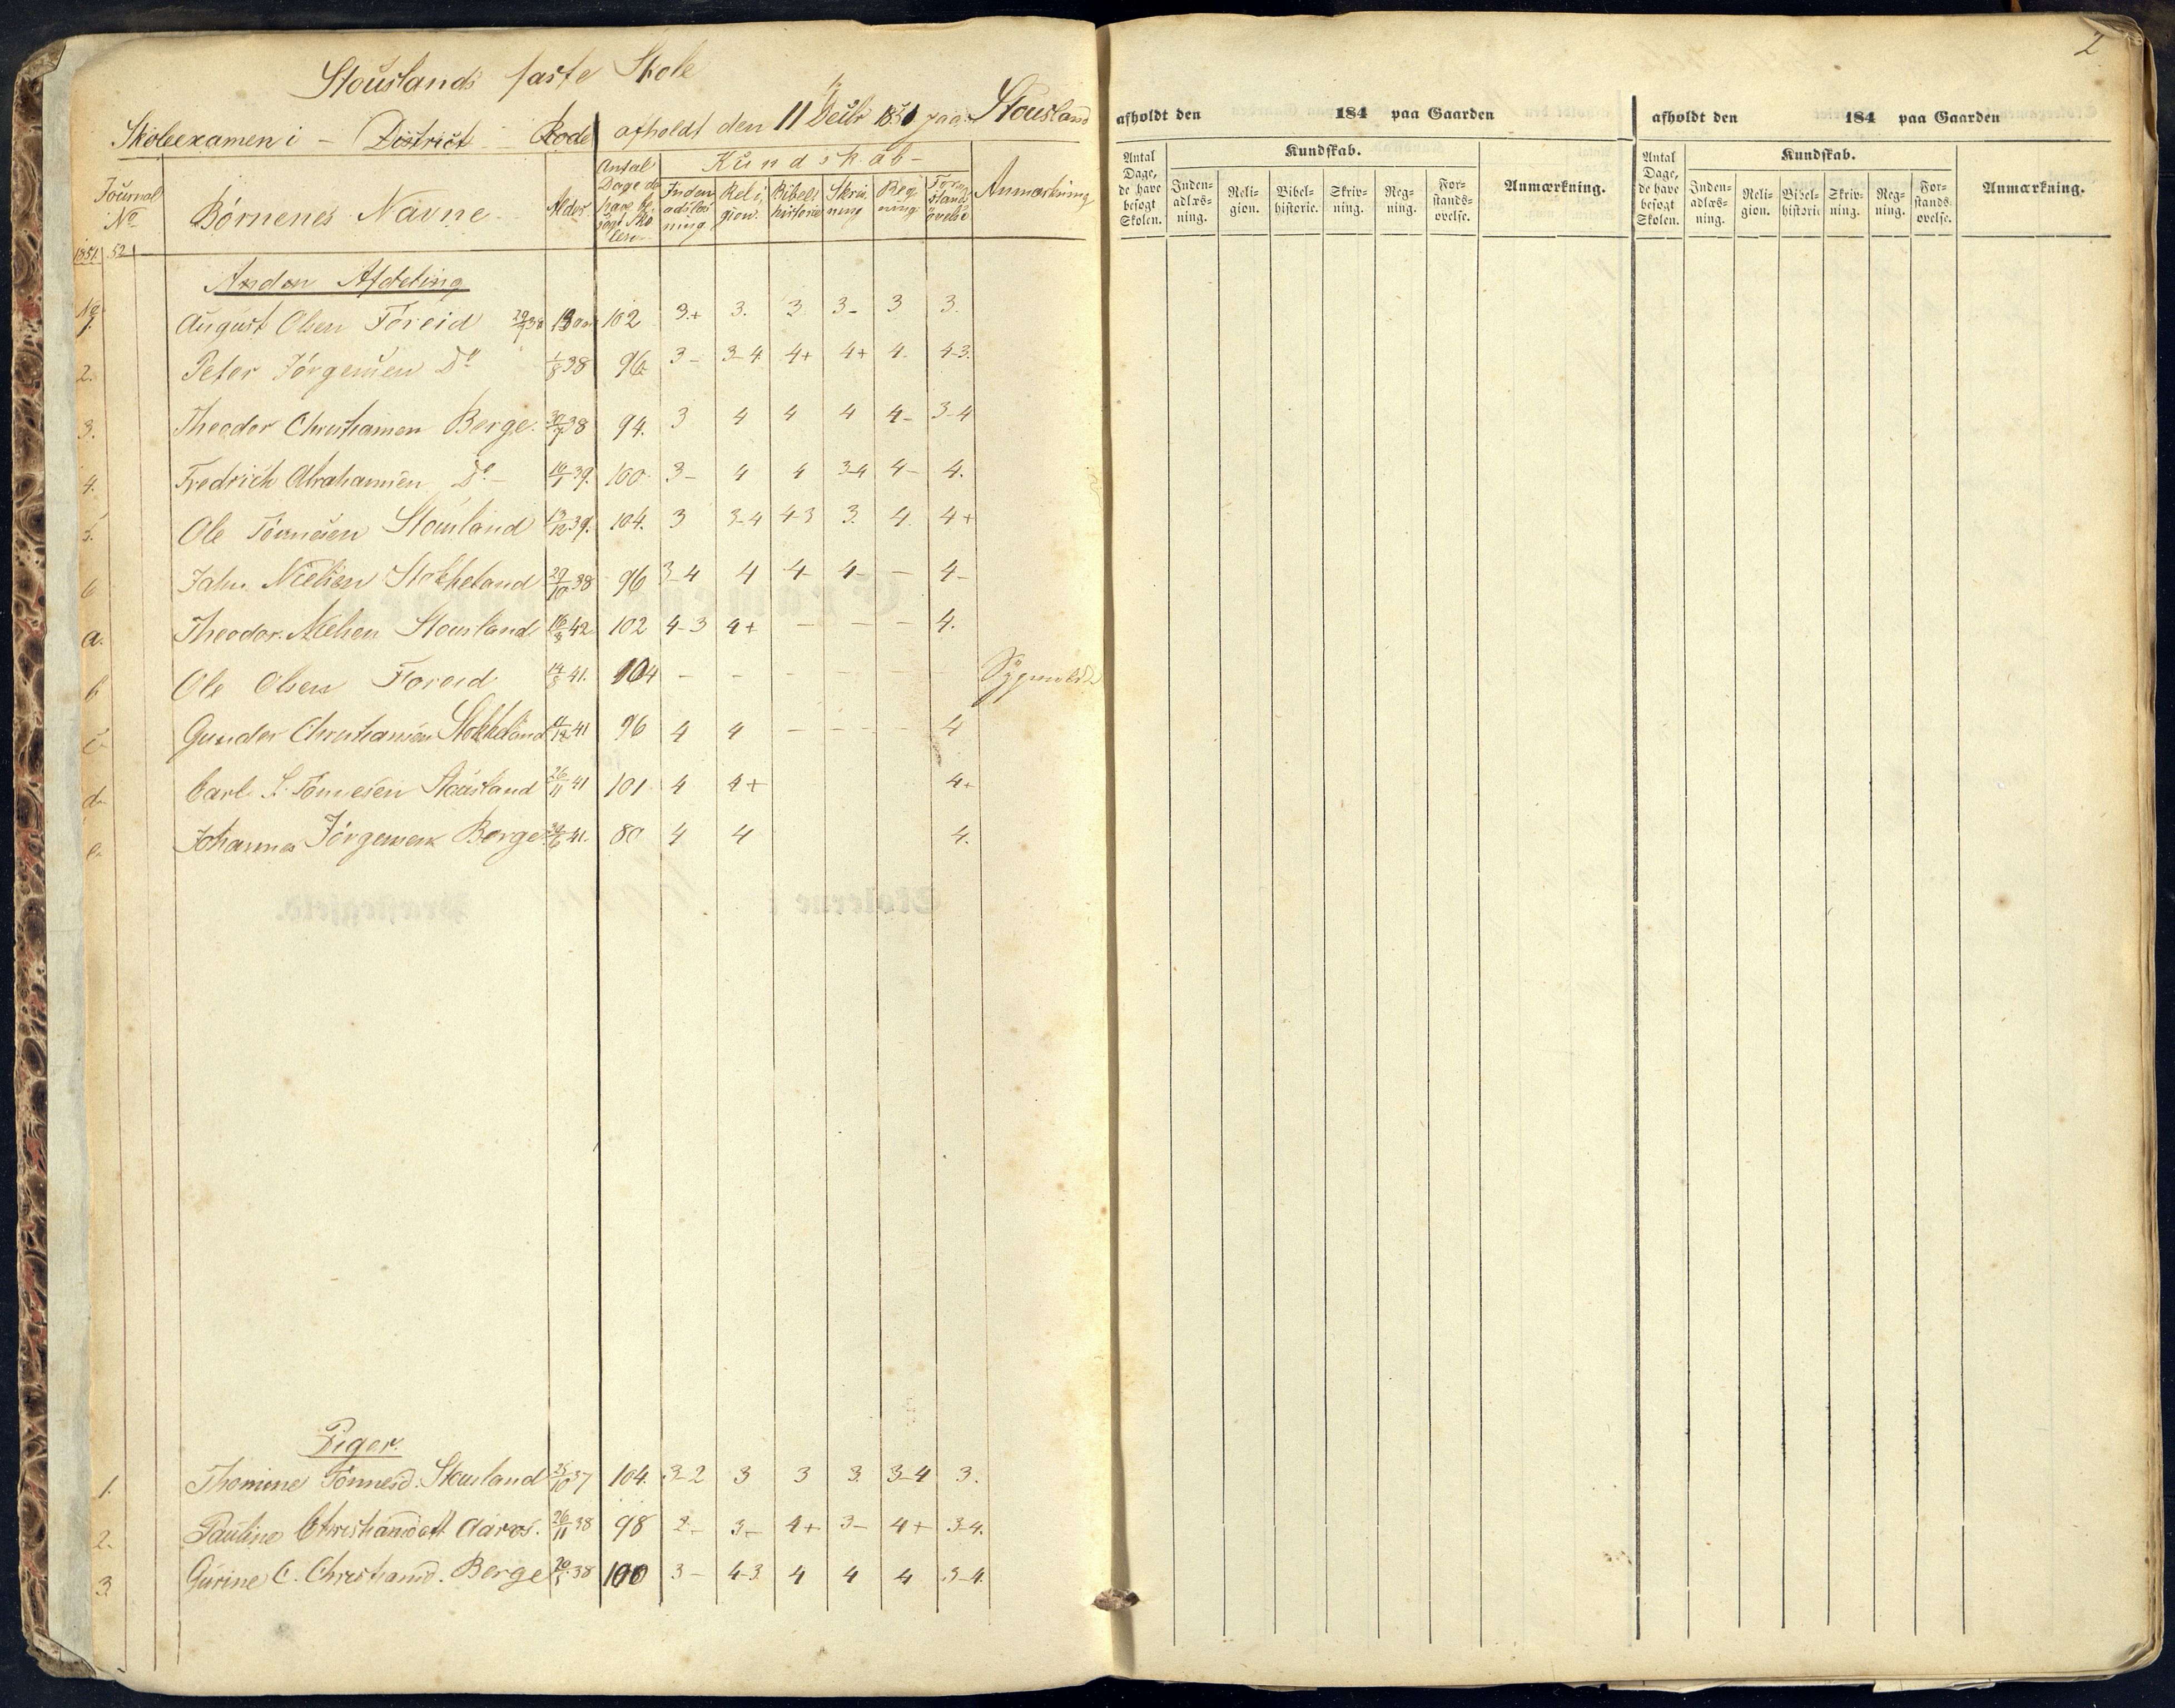 2
Stouslands faste Skole
Skoleexamen i - District - Rode afholdt den 11 Decbr 1851 paa Stousland
Journal No Börnenes Navne Alder Antal Dage de have besögt Skolen Kundskab Anmærkning
Indenadlæsning Religion Bibelhistorie Skrivning Regning Forstandsövelse
1851 52
Anden Afdeling
No 1. August Olsen Föreid 29/7 38 13 102 3+ 3. 3. 3- 3 3.
2. Peter Jörgensen Do 1/8 38 96 3- 3-4 4+ 4+ 4. 4-3.
3. Theodor Christiansen Berge 30/7 38 94. 3 4 4 4 4- 3-4
4. Fredrich Abrahamsen Do - 16/1 39. 100 3- 4 4 3-4 4- 4.
5. Ole Tönnesen Stousland 13/12 39. 104. 3 3-4 4-3 3. 4. 4+
6 Jahn Nielsen Stokkeland 29/10 38 96 3-4 4 4- 4- - 4-
a. Theodor Nielsen Stousland 16/3 42 102 4-3 4+ - - - 4.
b Ole Olsen Foreid 14/8 41. 104 - - - - - -
c. Gunder Christiansen Stokkeland 14/12 41 96 4 4 - - - 4
d. Carl S. Tönnesen Stousland 26/11 41 101 4 4+ 4+
e. Johannes Jörgensen Berge 41. 80 4 4 4.
Piger.
1. Thomine Tönnesd. Stousland 25/10 37 104. 3-2 3 3 3. 3-4 3.
2. Pauline Christiansdatt Aaros. 26/11 38 98 2- 3- 4+ 3- 4+ 3-4.
3. Gurine C. Christiansd. Berge 38 100 3- 4-3 4 4 4 3-4.
afholdt den 184 paa Gaarden
Antal Dage, de have besøgt Skolen. Kundskab. Anmærkning.
Inden-adlæs-ning. Reli-gion. Bibel-historie. Skriv-ning. Reg-ning. For-stands-øvelse.
afholdt den 184 paa Gaarden
Antal Dage, de have besøgt Skolen. Kundskab. Anmærkning.
Inden-adlæs-ning. Reli-gion. Bibel-historie. Skriv-ning. Reg-ning. For-stands-øvelse.